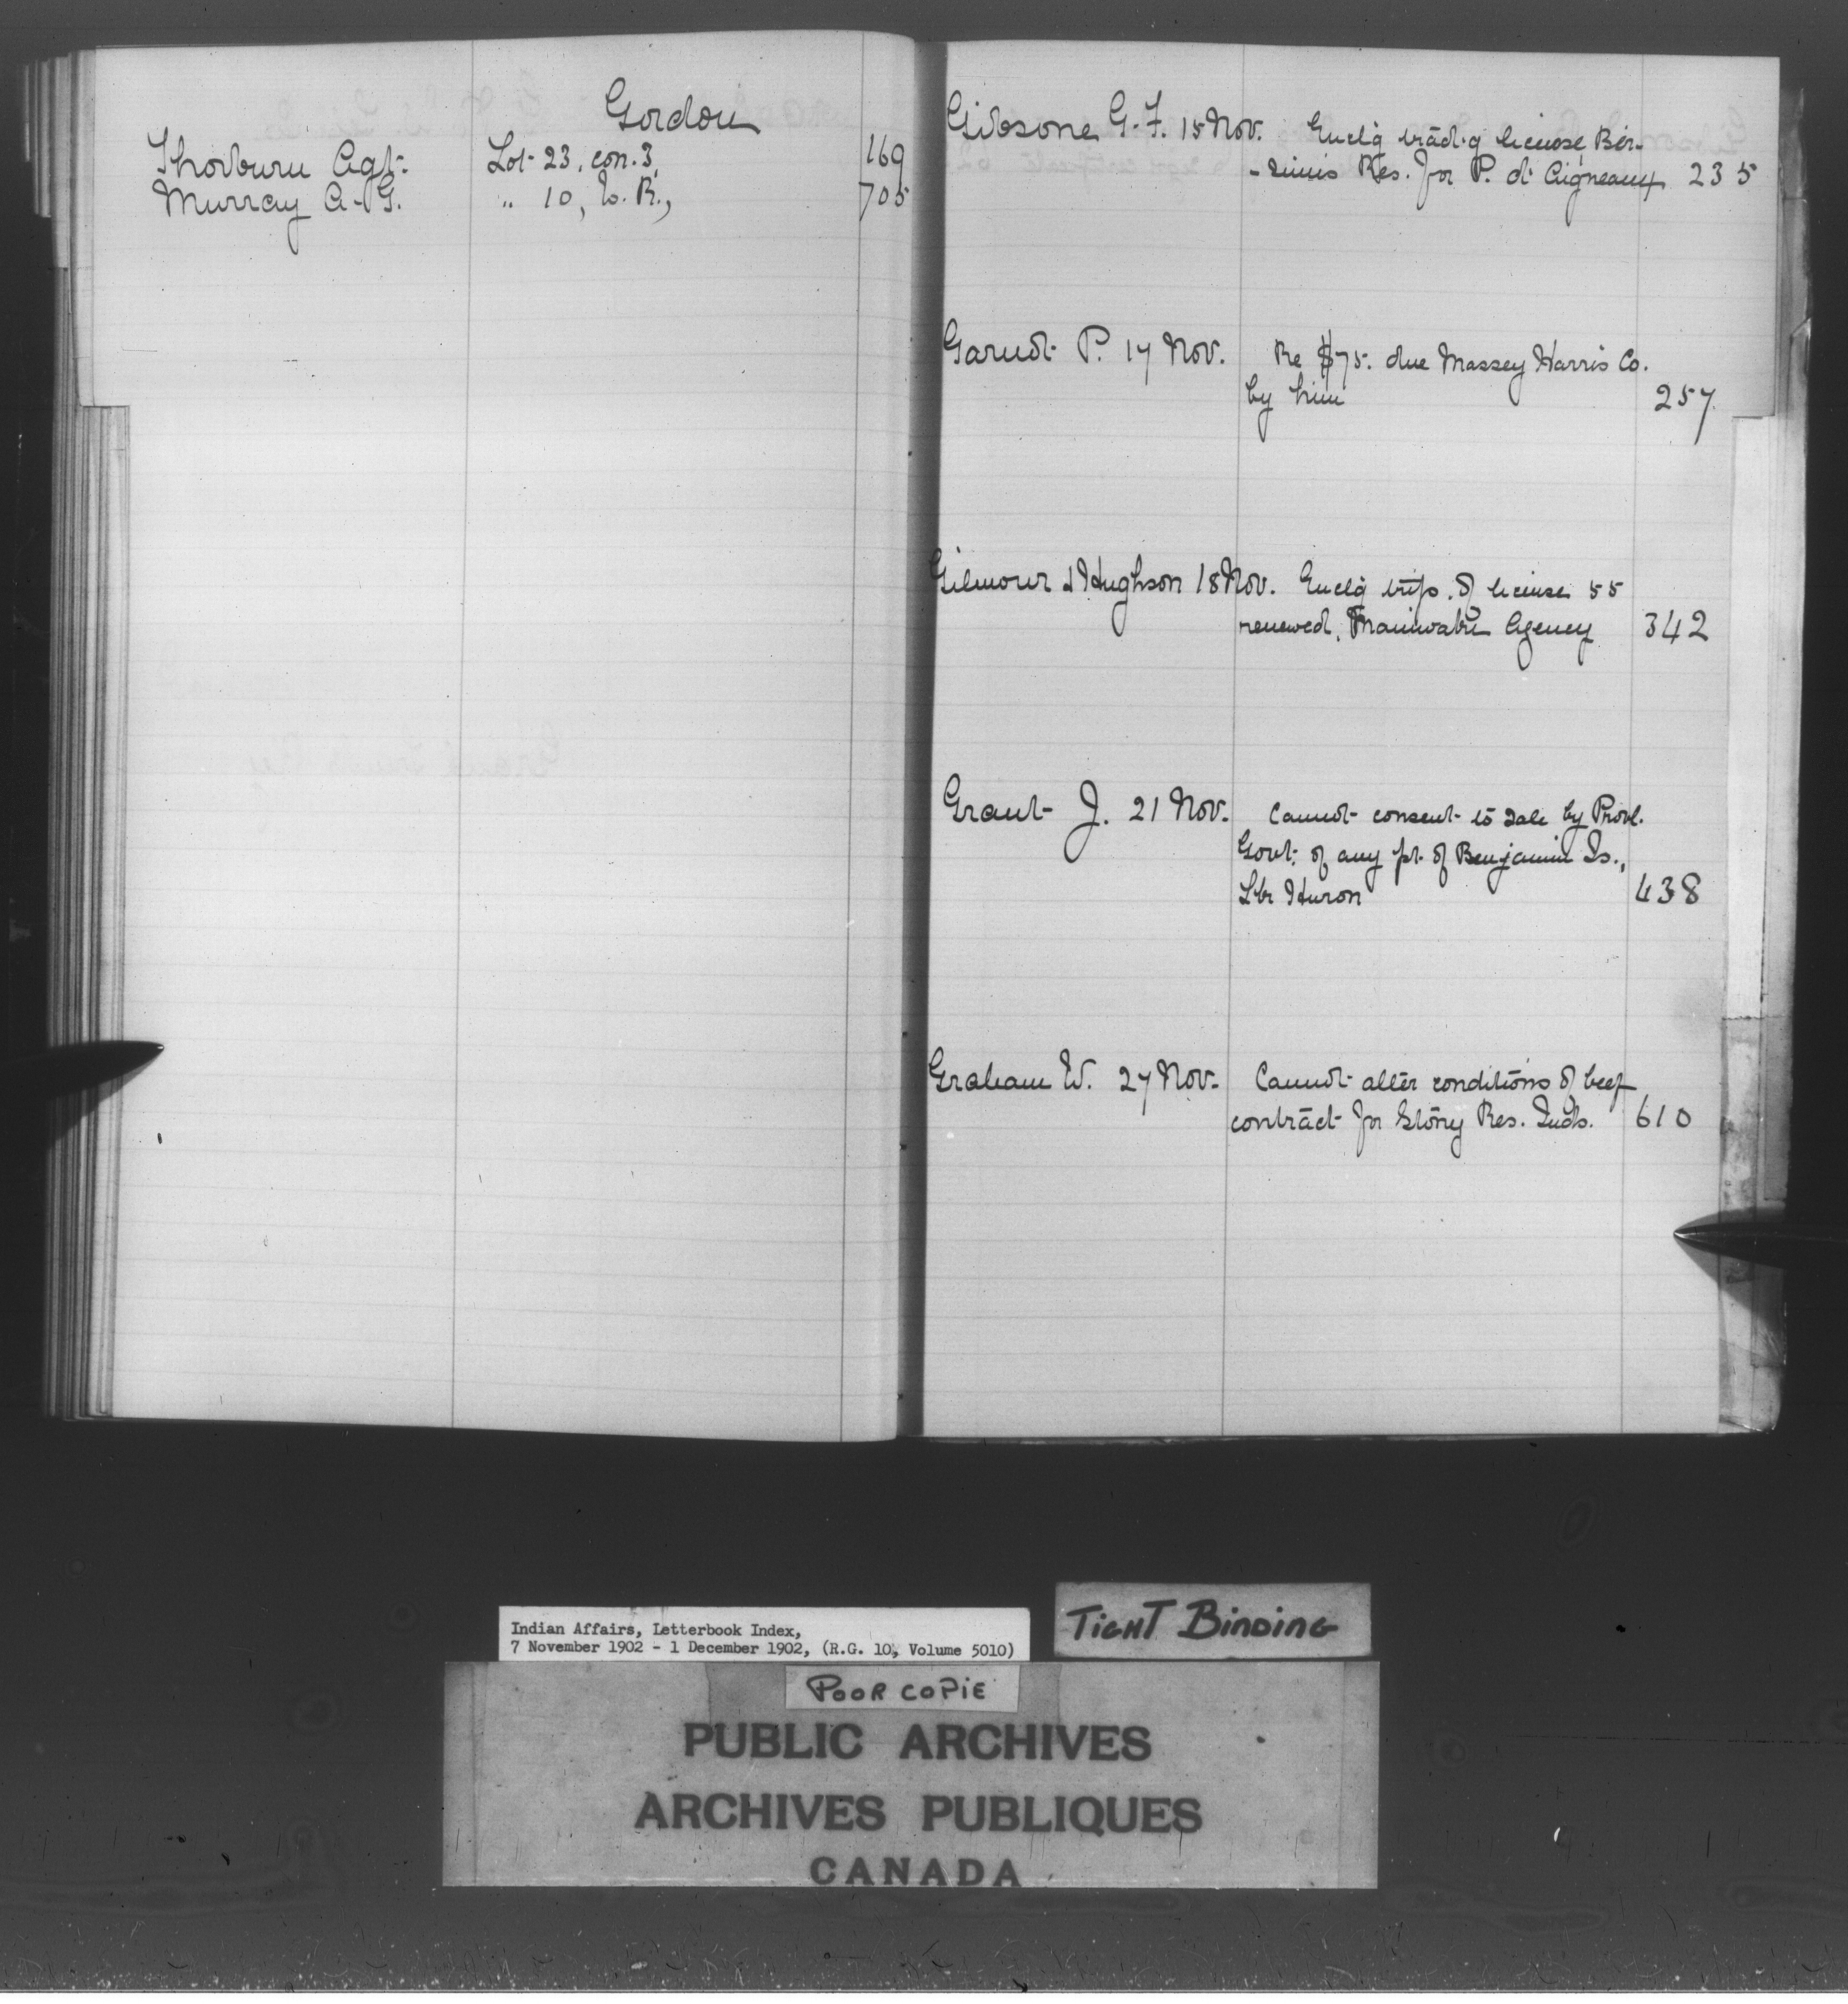 Gordon
Thorburn Agt. Lot 23, con. 3, 169
Murray A. G. " 10, W. R., 705
Gibsone G. F. 15 Nov. Enclg trad.g license, Ber-
-simis Res. for P. d'Aigneaux 235
P. 17 Nov. Re $75. due Massey Harris Co.
by him 257
Gilmour & Hughson 18 Nov. Enclg trip. of license 55
renewed, Maniwaki Agency 342
Grant J. 21 Nov. Cannot consent to sale by Provl.
Govt. of any pt. of Benjamin Is.,
Lke Huron 438
Graham W. 27 Nov. Cannot alter conditions of beef
contract for Stony Res. Inds. 610
Indian Affairs, Letterbook Index,
7 November 1902 - 1 December 1902, (R.G. 10, Volume 5010)
TIGHT BINDING
POOR COPIE
PUBLIC ARCHIVES
ARCHIVES PUBLIQUES
CANADA